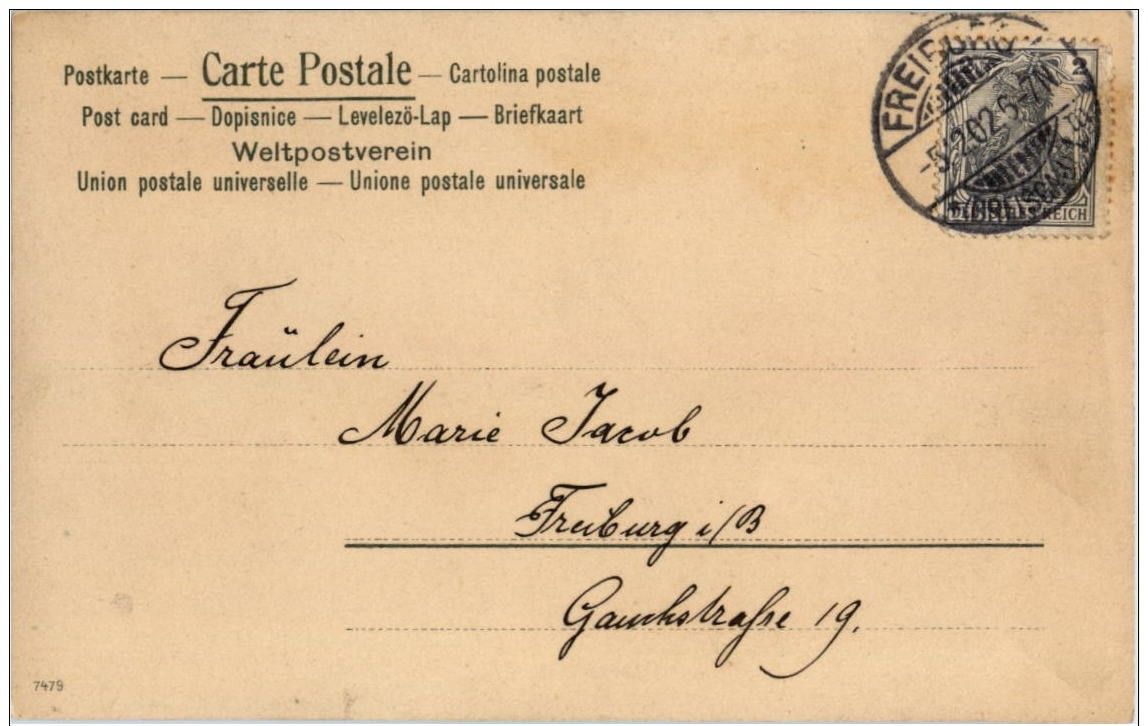 Postkarte — Carte Postale — Cartolina postale
Post card — Dopisnice — Levelezö-Lap — Briefkaart
Weltpostverein
Union postale universelle — Unione postale universale
FREIBURG
2
-5.2.02.6-7N.
*(BREISGAU)1a
DEUTSCHES REICH
Fräulein
Marie Jacob
Freiburg i/B
Gauchstraße 19.
7479